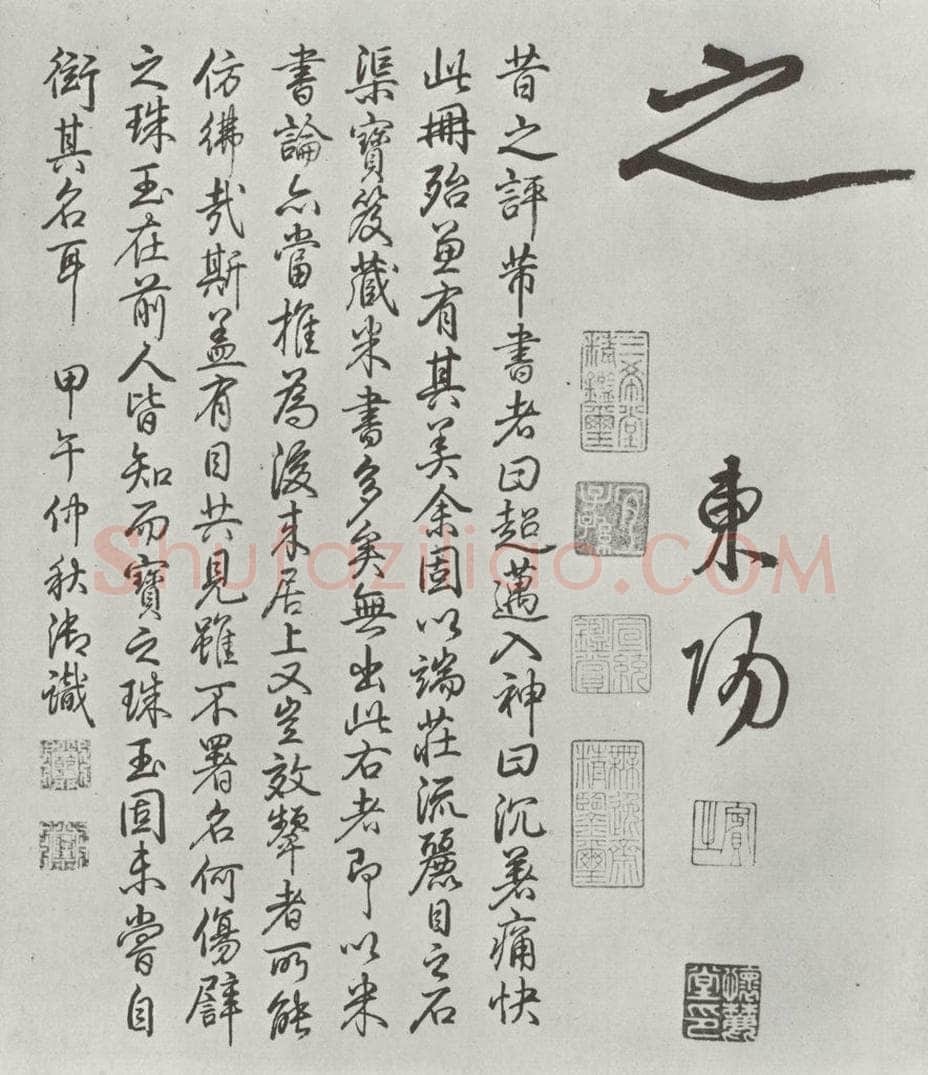 之
東陽
三希堂精鑑璽
宜子孫
宣統鑑賞
無逸齋精鑒璽
懷蓑堂印
昔之評芾書者曰超邁入神曰沉著痛快
此冊殆兼有其美余固以端莊流麗目之石
渠寶笈藏米書多矣無出此右者即以米
書論亦當推為後來居上又豈效顰者所能
仿彿哉斯蓋有目共見雖不署名何傷譬
之珠玉在前人皆知而寶之珠玉固未嘗自
衒其名耳 甲午仲秋御識
Shufaziliao.COM